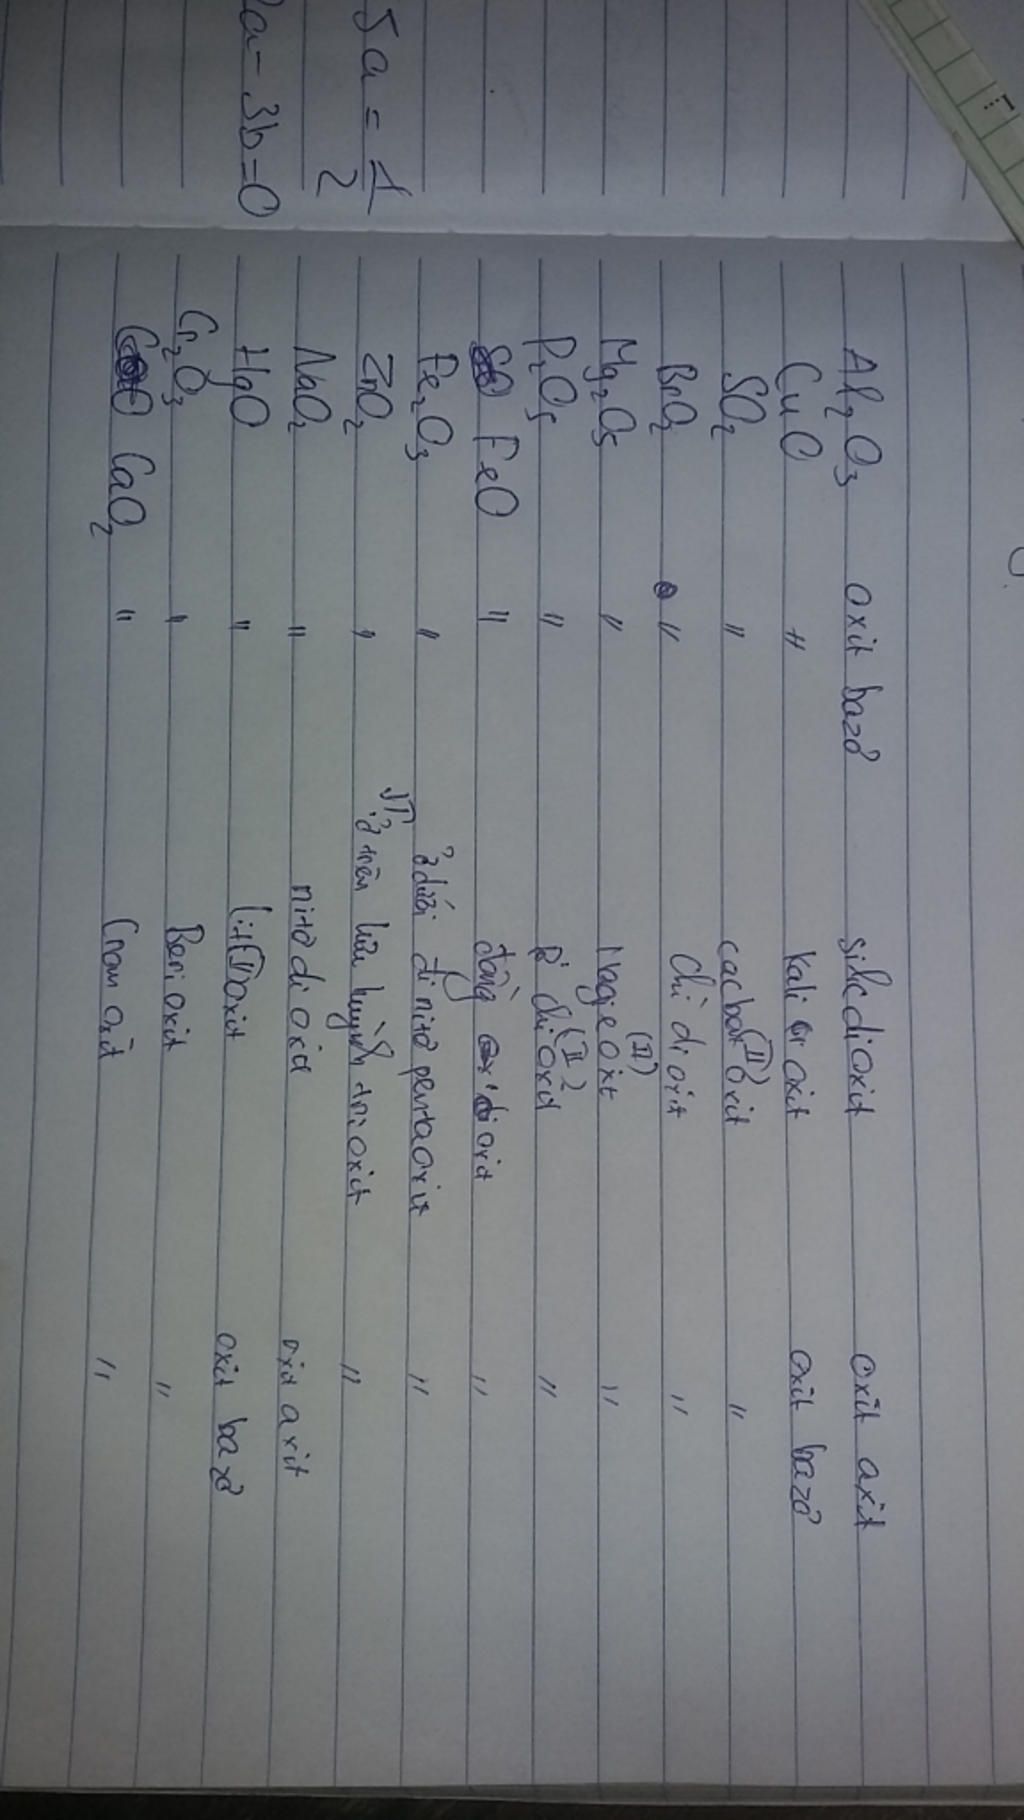 5a = 1/2
a - 3b = 0
Al₂O₃ oxit bazơ silic dioxit oxit axit
CuO " kali oxit oxit bazơ
SO₂ " cacbon (II) oxit "
BrO₂ " chì di oxit "
Mg₂O₅ " Magie (II) oxit "
P₂O₅ " chì (II) oxit "
FeO " đồng oxit "
Fe₂O₃ " ở dưới đi nitơ pentaoxit "
ZnO₂ " ở trên lưu huỳnh tri oxit "
NaO₂ " nitơ di oxit oxit axit
HgO " liti (I) oxit oxit bazơ
Cr₂O₃ " Beri oxit "
CaO₂ " Crom oxit "